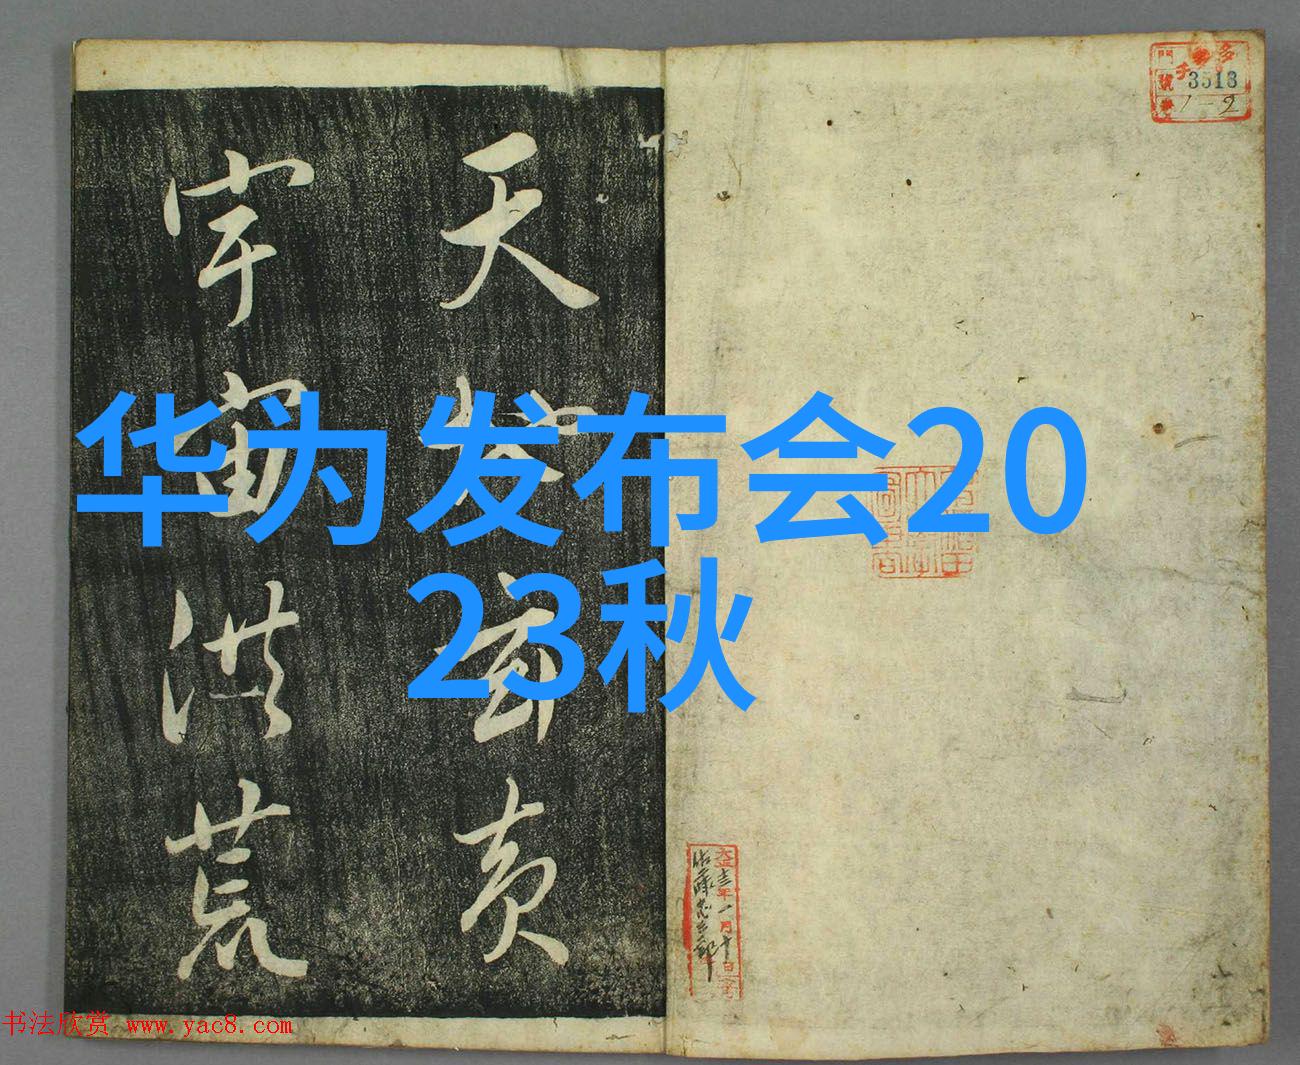 天地玄黄
宇宙洪荒
华为发布会20
23秋
3513
1-2
大正十三年一月十日
书法欣赏 www.yac8.com